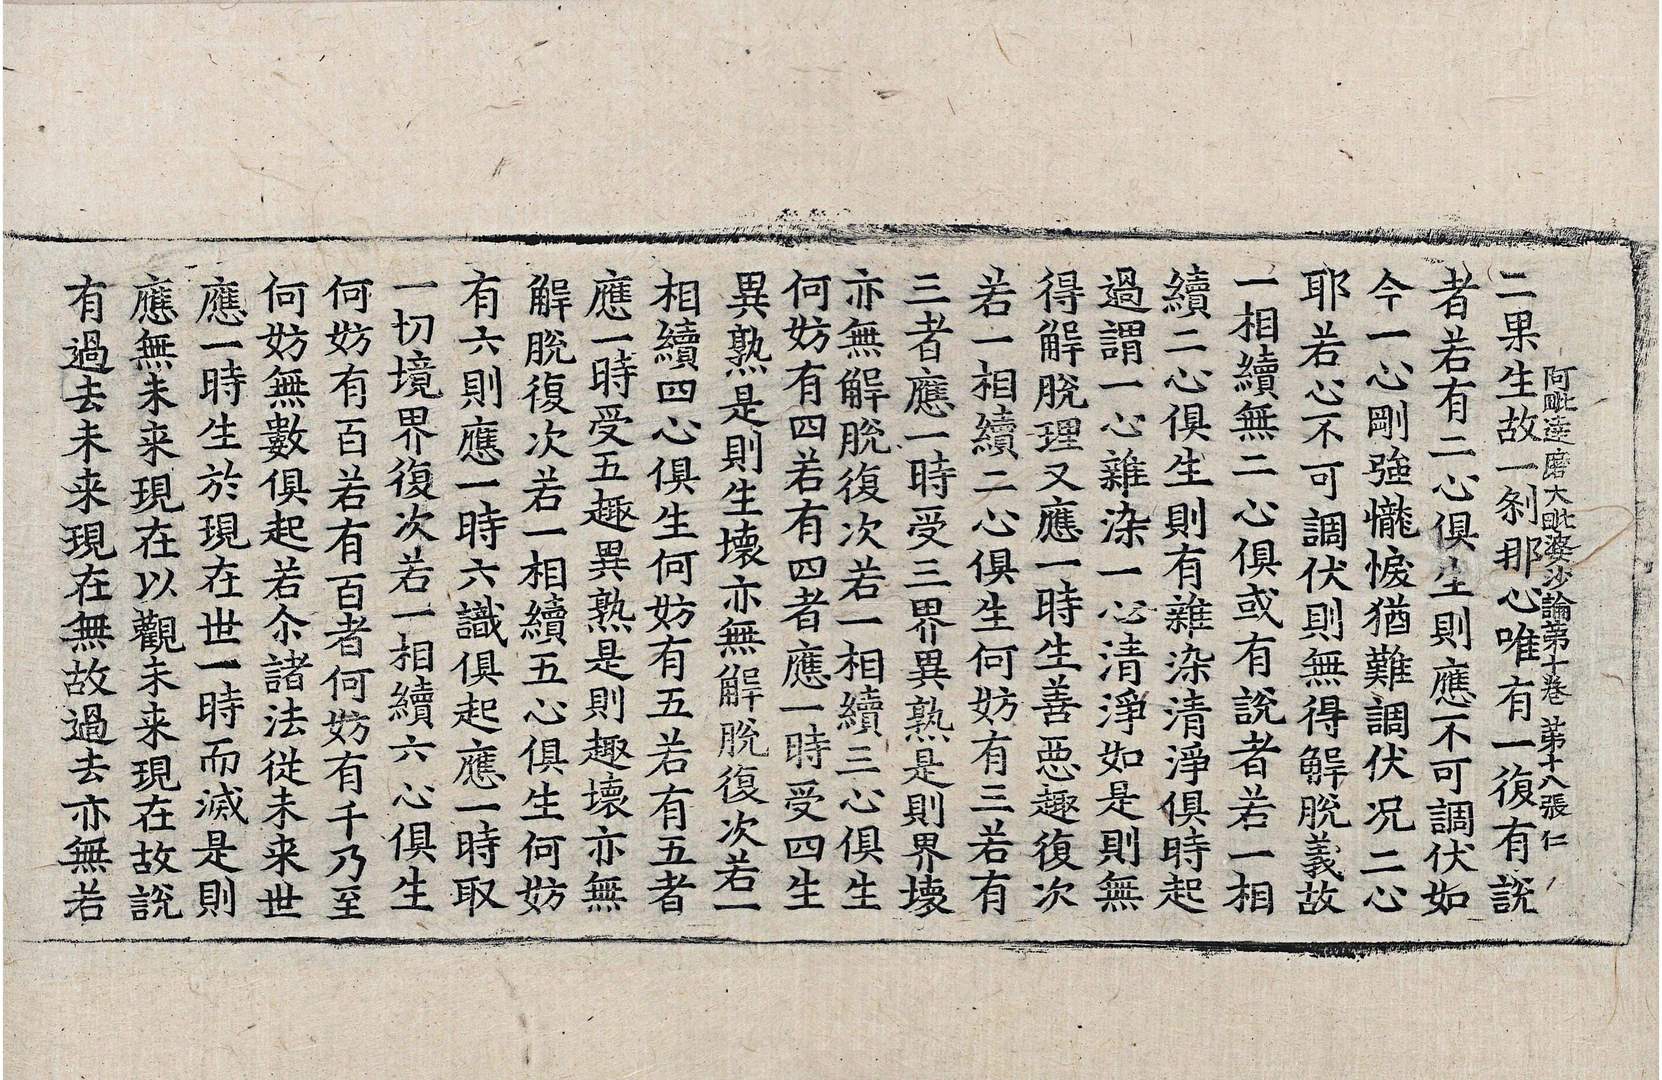 阿毗達磨大毗婆沙論第十卷 第十八張 仁
二果生故一剎那心唯有一復有說
者若有二心俱生則應不可調伏如
今一心剛強㦬悷猶難調伏况二心
耶若心不可調伏則無得解脫義故
一相續無二心俱或有說者若一相
續二心俱生則有雜染清淨俱時起
過謂一心雜染一心清淨如是則無
得解脫理又應一時生善惡趣復次
若一相續二心俱生何妨有三若有
三者應一時受三界異熟是則界壞
亦無解脫復次若一相續三心俱生
何妨有四若有四者應一時受四生
異熟是則生壞亦無解脫復次若一
相續四心俱生何妨有五若有五者
應一時受五趣異熟是則趣壞亦無
解脫復次若一相續五心俱生何妨
有六則應一時六識俱起應一時取
一切境界復次若一相續六心俱生
何妨有百若有百者何妨有千乃至
何妨無數俱起若尒諸法從未來世
應一時生於現在世一時而滅是則
應無未来現在以觀未来現在故說
有過去未来現在無故過去亦無若